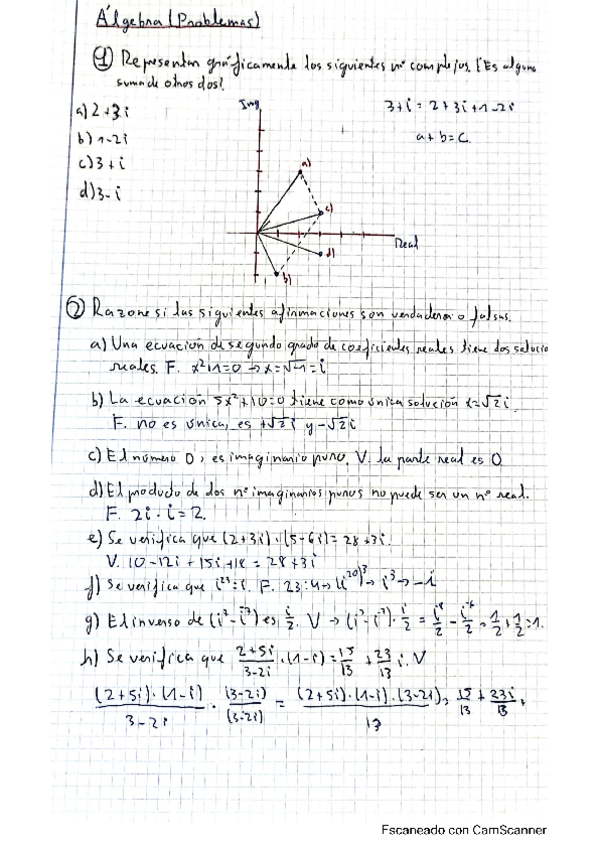 Álgebra (Problemas)
① Representar gráficamente los siguientes nº complejos. ¿Es alguno
suma de otros dos?
a) 2+3i
b) 1-2i
c) 3+i
d) 3-i
3+i = 2+3i+1-2i
a+b=c
Img
a)
c)
Real
d)
b)
② Razone si las siguientes afirmaciones son verdaderas o falsas.
a) Una ecuación de segundo grado de coeficientes reales tiene dos solucio
reales. F. x²+1=0 → x=√-1=i
b) La ecuación 5x²+10=0 tiene como única solución x=√2i.
F. no es única, es +√2i y -√2i
c) El número 0, es imaginario puro. V. la parte real es 0
d) El producto de dos nº imaginarios puros no puede ser un nº real.
F. 2i·i=2.
e) Se verifica que (2+3i)·(5-6i)=28+3i.
V. 10-12i+15i+18=28+3i
f) Se verifica que i²³=i. F. 23:4→ → i³ → -i
g) El inverso de es i/2. V →
h) Se verifica que (2+5i)/(3-2i)·(1-i)=15/13+23/13 i. V
(2+5i)·(1-i)/(3-2i) · (3-2i)/(3-2i) = (2+5i)·(1-i)·(3-2i)/13 = 15/13 + 23i/13
Escaneado con CamScanner